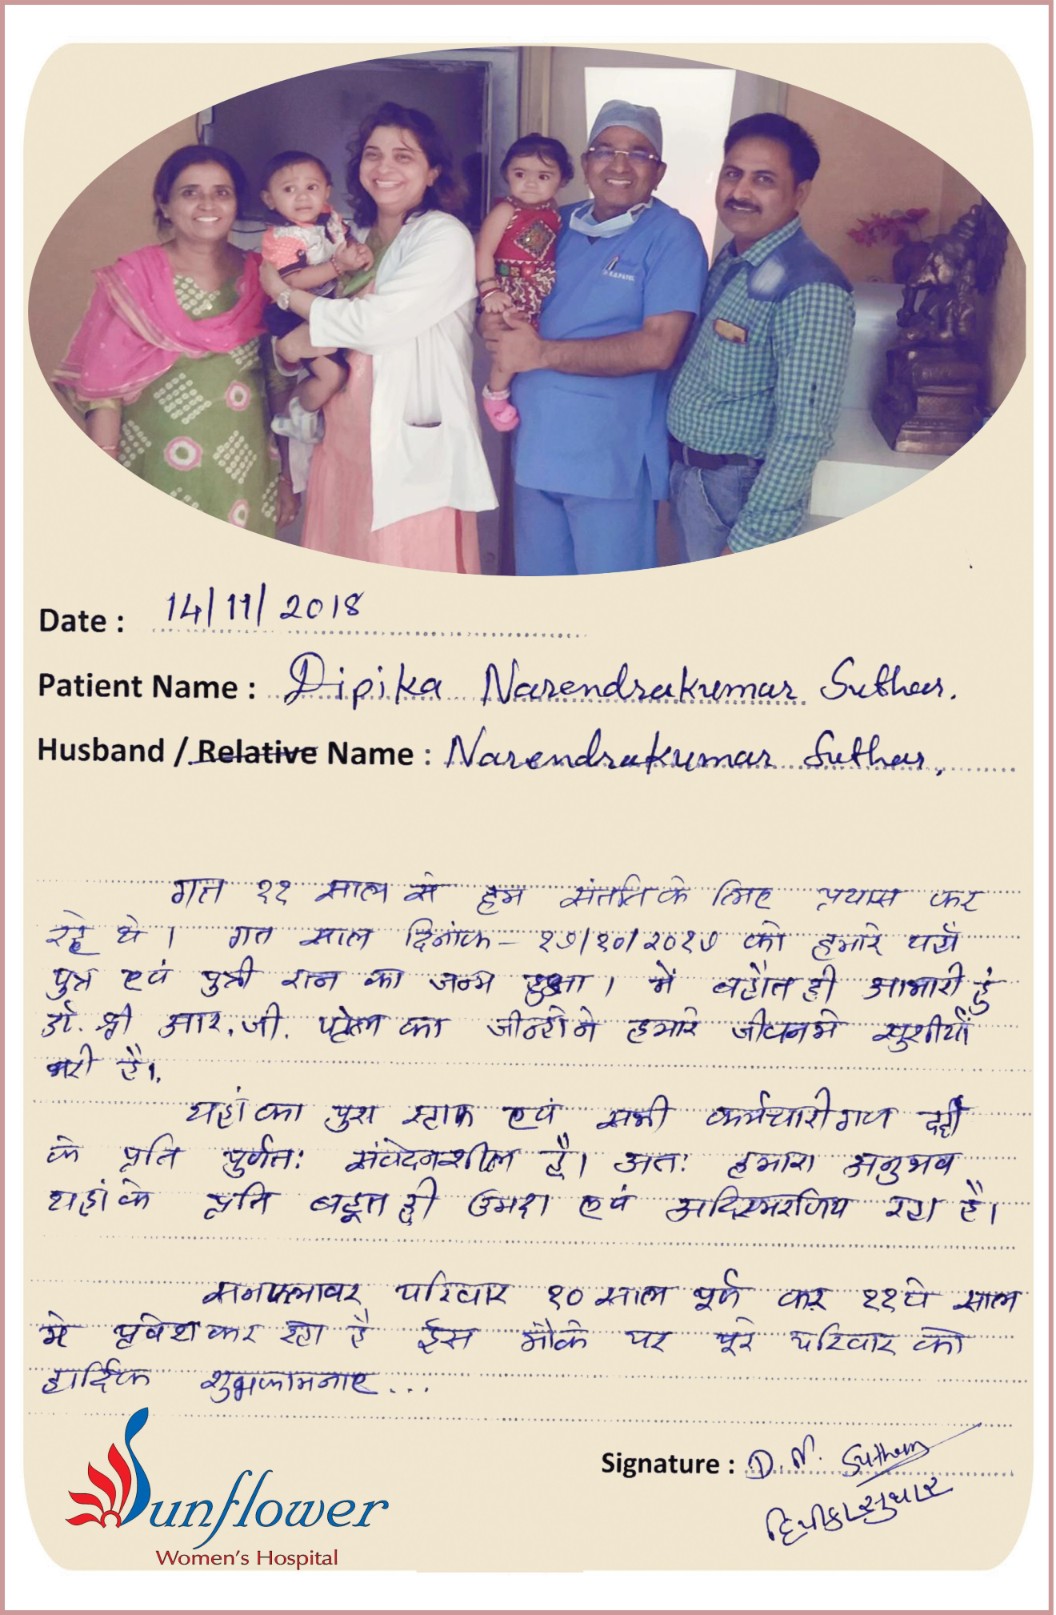 Date : 14/11/2018
Patient Name : Dipika Narendrakumar Suthar.
Husband / Relative Name : Narendrakumar Suthar.
गत ११ साल से हम संतति के लिए प्रयास कर
रहे थे । गत साल दिनांक - १७/१०/२०१७ को हमारे यहाँ
पुत्र एवं पुत्री रत्न का जन्म हुआ । में बहोत ही आभारी हुं
डॉ. श्री आर. जी. पटेल का जीन्होने हमारे जीवनमे खुशीयाँ
भरी है।.
यहां का पुरा स्टाफ एवं सभी कर्मचारी गण दर्दी
के प्रति पुर्णत: संवेदनशील है। अत: हमारा अनुभव
यहां के प्रति बहुत ही उमदा एवं अविस्मरणिय रहा है।
सनफ्लावर परिवार १० साल पूर्ण कर ११वे साल
मे प्रवेश कर रहा है ईस मौके पर पूरे परिवार को
हार्दिक शुभकामनाए...
Signature : D. N. Suthar
दिपीका सुथार
Sunflower
Women's Hospital